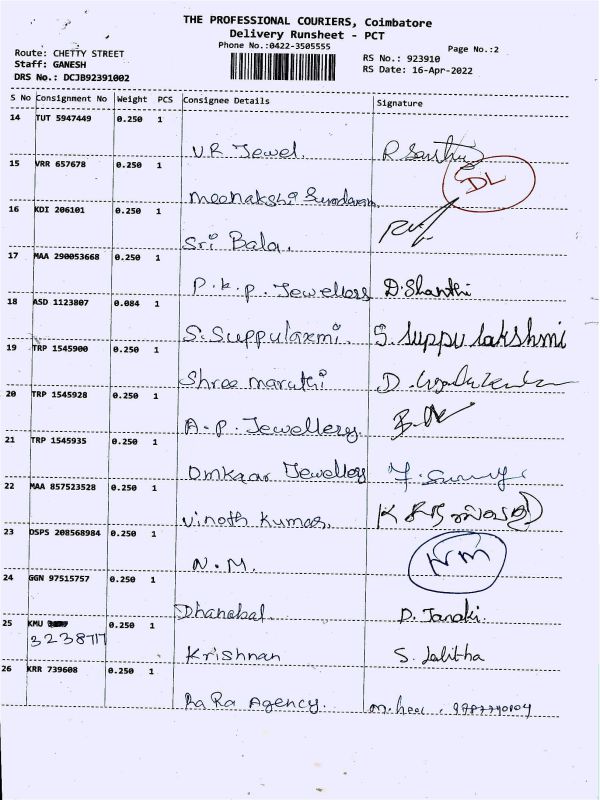 THE PROFESSIONAL COURIERS, Coimbatore
Delivery Runsheet - PCT
Phone No.:0422-3505555
Page No.:2
Route: CHETTY STREET
Staff: GANESH
DRS No.: DCJB92391002
RS No.: 923910
RS Date: 16-Apr-2022
S No Consignment No Weight PCS Consignee Details Signature
14 TUT 5947449 0.250 1
V R Jewel
15 VRR 657678 0.250 1
DL
Meenakshi Sundaram
16 KDI 206101 0.250 1
Sri Bala.
17 MAA 290053668 0.250 1
P.K.P. Jewellers D.Shanthi
18 ASD 1123807 0.084 1
S.Suppulaxmi. S. Suppu lakshmi
19 TRP 1545900 0.250 1
Shree maruthi D.
20 TRP 1545928 0.250 1
A.P. Jewellery
21 TRP 1545935 0.250 1
Omkaar Jewellery
22 MAA 857523528 0.250 1
Vinoth Kumar. K
23 DSPS 208568984 0.250 1
N.M. NM
24 GGN 97515757 0.250 1
Dhanabal D. Janaki
25 KMU 0.250 1
3238717
Krishnan S. Lalitha
26 KRR 739608 0.250 1
Ra Ra Agency.